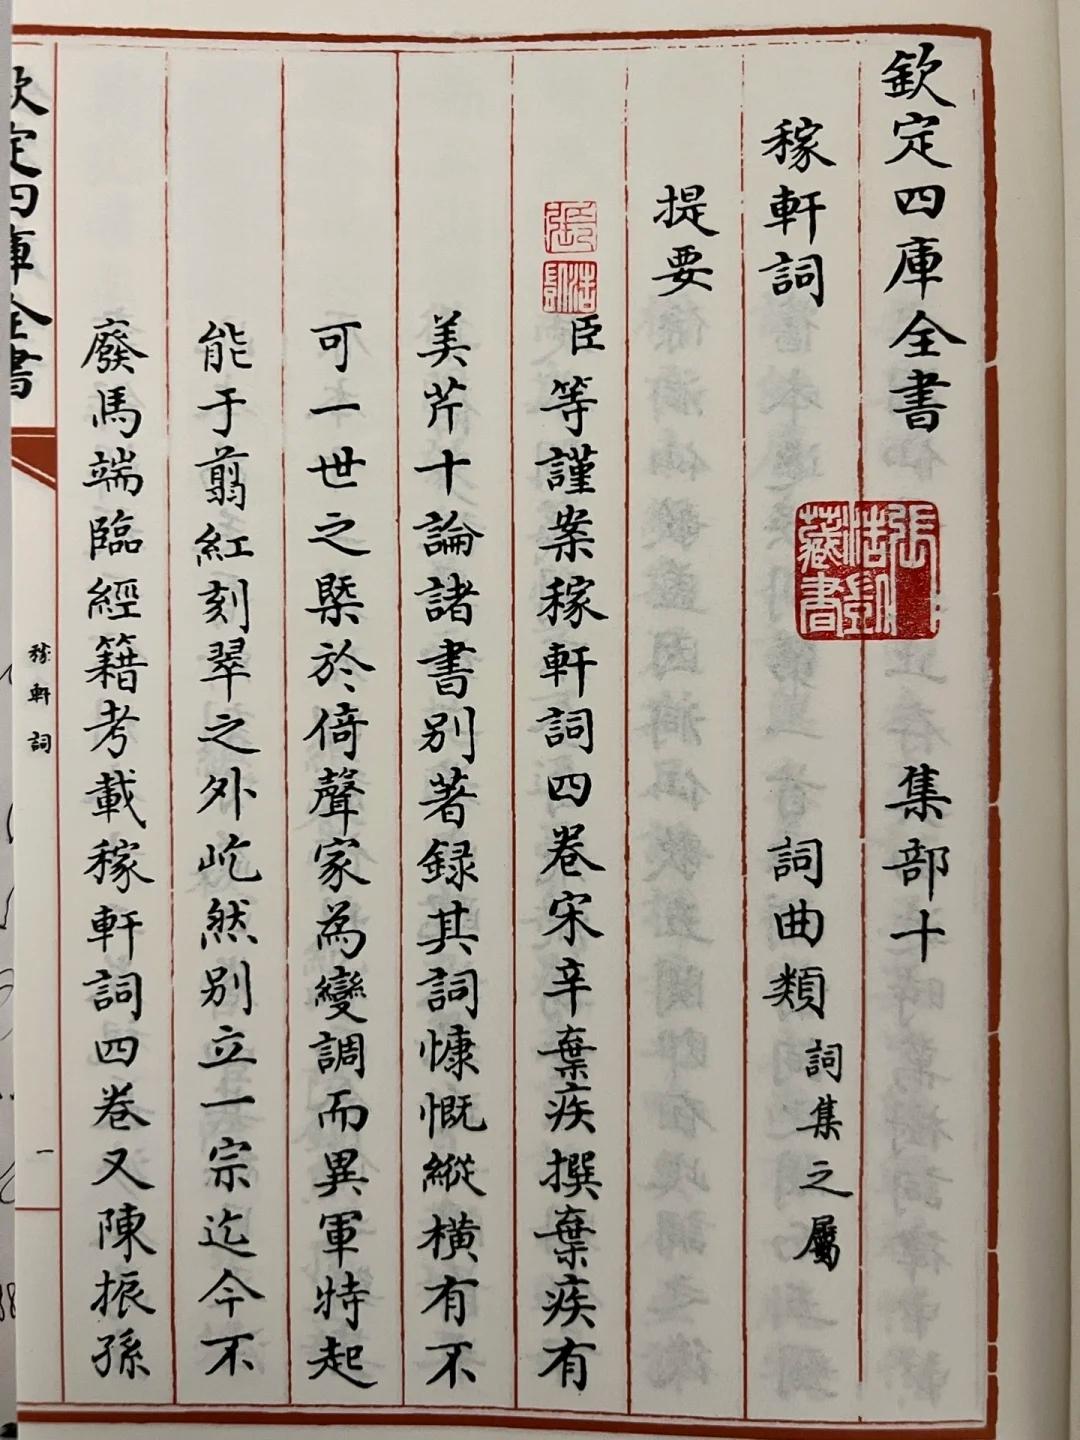 欽定四庫全書 集部十
稼軒詞 詞曲類 詞集之屬
提要
臣等謹案稼軒詞四卷宋辛棄疾撰棄疾有
美芹十論諸書别著録其詞慷慨縱横有不
可一世之槩於倚聲家為變調而異軍特起
能于翦紅刻翠之外屹然别立一宗迄今不
廢馬端臨經籍考載稼軒詞四卷又陳振孫
欽定四庫全書
稼軒詞
一
張浩
藏書